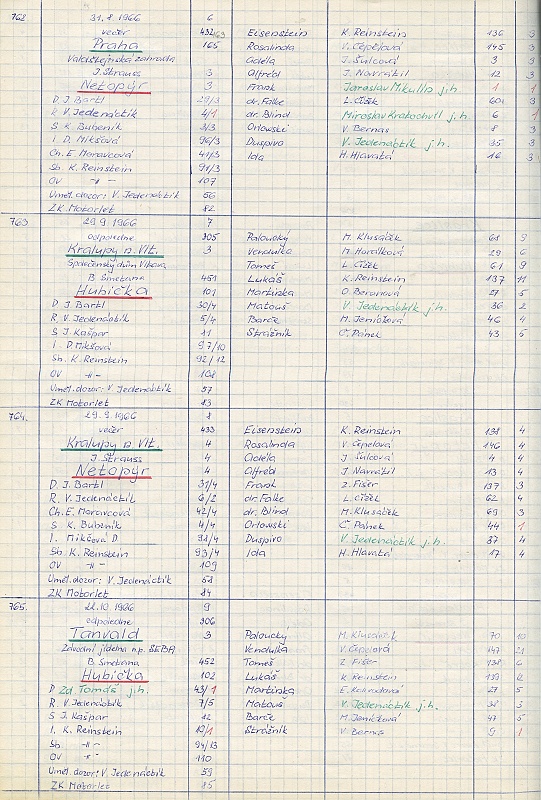 762 31.8.1966 6
večer 432 163 Eisenstein K. Reinstein 136 3
Praha 165 Rosalinda V. Čepelová 145 3
Valdštejnská zahrada Adéla J. Šulcová 3 3
J. Strauss 3 Alfréd J. Navrátil 12 3
Netopýr 3 Frank Jaroslav Mikulín j.h. 1 1
D. J. Bartl 29/3 dr. Falke L. Čížek 60 3
R V. Jedenáctík 4/1 dr. Blind Miroslav Kratochvíl j.h. 6 1
S K. Bubeník 3/3 Orlowski V. Bernas 8 3
I D. Mikšová 96/3 Duspivo V. Jedenáctík j.h. 35 3
Ch. E. Moravcová 41/3 Ida H. Hlavatá 16 3
Sb. K. Reinstein 91/3
OV -"- 107
Uměl. dozor: V. Jedenáctík 56
ZK Motorlet 82
763. 29.9.1966 7
odpoledne 305 Paloucký M. Klusáček 68 9
Kralupy n. Vlt. 3 Vendulka M. Horálková 29 6
Společenský dům Vltava Tomeš L. Čížek 61 9
B. Smetana 451 Lukáš K. Reinstein 137 11
Hubička 101 Martinka O. Beranová 27 5
D J. Bartl 30/4 Matouš V. Jedenáctík j.h. 36 2
R V. Jedenáctík 5/4 Barče M. Jeníčková 46 4
S J. Kašpar 11 Strážník Č. Pánek 43 5
I. D. Mikšová 97/10
Sb. K. Reinstein 92/12
OV -"- 108
Uměl. dozor: V. Jedenáctík 57
ZK Motorlet 83
764. 29.9.1966 8
večer 433 Eisenstein K. Reinstein 138 4
Kralupy n. Vlt. 4 Rosalinda V. Čepelová 146 4
J. Strauss 4 Adéla J. Šulcová 4 4
Netopýr 4 Alfréd J. Navrátil 13 4
D. J. Bartl 31/4 Frank Z. Fišer 137 3
R. V. Jedenáctík 6/2 dr. Falke L. Čížek 62 4
Ch. E. Moravcová 42/4 dr. Blind M. Klusáček 69 3
S K. Bubeník 4/4 Orlowski Č. Pánek 44 1
I. Mikšová D 98/4 Duspivo V. Jedenáctík j.h. 37 4
Sb. K. Reinstein 93/4 Ida H. Hlavatá 17 4
OV 109
Uměl. dozor: V. Jedenáctík 58
ZK Motorlet 84
765. 22.10.1966 9
odpoledne 306
Tanvald 3 Paloucký M. Klusáček 70 10
Závodní jídelna n.p. SEBA Vendulka V. Čepelová 147 21
B. Smetana 452 Tomeš Z. Fišer 138 6
Hubička 102 Lukáš K. Reinstein 139 2
D Zd. Tomáš j.h. 43/1 Martinka 27 5
R. V. Jedenáctík 7/5 Matouš V. Jedenáctík j.h. 38 3
S J. Kašpar 12 Barče M. Jeníčková 47 5
I. K. Reinstein Strážník V. Bernas 9 1
Sb -"- 94/13
OV -"- 110
Uměl. dozor: V. Jedenáctík 59
ZK Motorlet 85